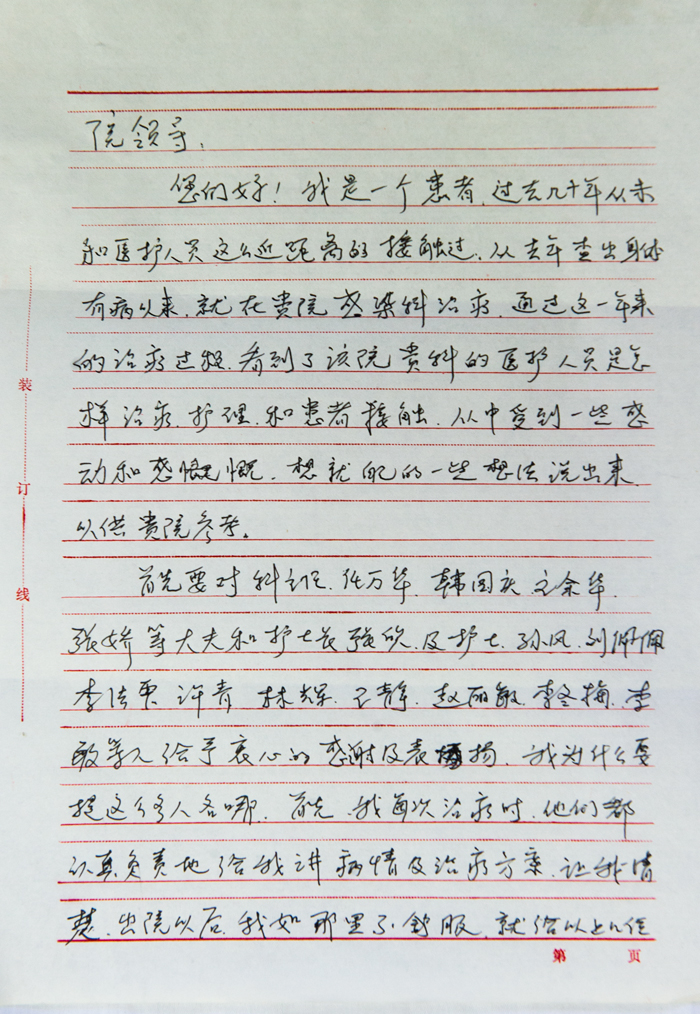 院领导、
您们好！我是一个患者、过去几十年从未
和医护人员这么近距离的接触过、从去年查出身体
有病以来、就在贵院感染科治疗、通过这一年来
的治疗过程、看到了该院贵科的医护人员是怎
样治疗、护理、和患者接触、从中受到一些感
动和感慨慨、想就自己的一些想法说出来
以供贵院参考。
首先要对科主任、任万华、韩国庆、王余华、
张娇等大夫和护士长张欣、及护士、孙凤、刘佩佩
李洁 许青 林 王静、赵丽敏、李冬梅、李
敏等人给予衷心的感谢及表扬、我为什么要
提这么多人名哪、首先、我每次治疗时、他们都
认真负责地给我讲病情及治疗方案、让我清
楚、出院以后、我如那里不舒服、就给以上几位
装
订
线
第 页